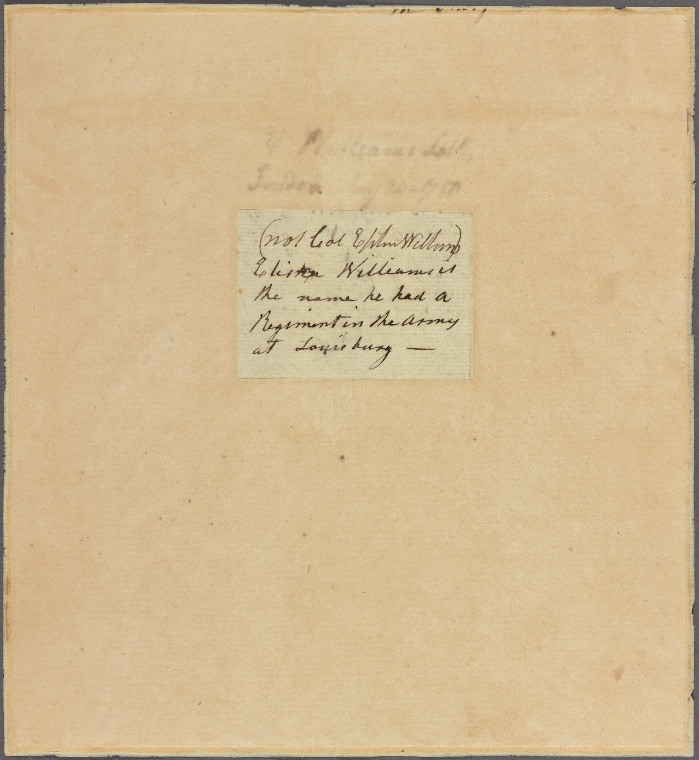 Williams
London
(not Col Ephm Willims)
Elisha Williams is
the name he had a
Regiment in the Army
at Louisburg —